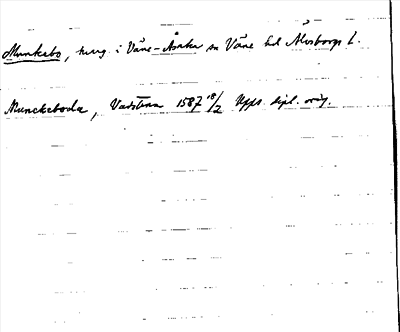 Munkebo, torp i Väne-Åsaka sn Väne hd Älvsborgs l.
Munckeboda, Vadstena 1587 18/2 Upps. dipl. orig.